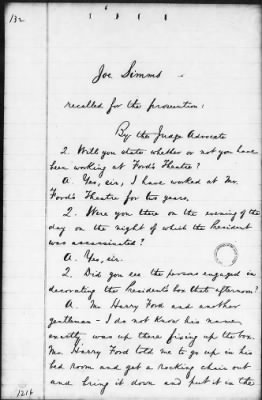 132
Joe Simms
recalled for the prosecution:
By the Judge Advocate
Q. Will you state whether or not you have
been working at Ford's Theatre?
A. Yes, sir, I have worked at Mr.
Ford's Theatre for two years.
Q. Were you there on the evening of the
day on the night of which the President
was assassinated?
A. Yes, sir.
Q. Did you see the persons engaged in
decorating the President's box that afternoon?
A. Mr Harry Ford and another
gentleman - I do not know his name,
exactly, was up there fixing up the box.
Mr. Harry Ford told me to go up in his
bed room and get a rocking chair
and bring it down and put it in the
1216